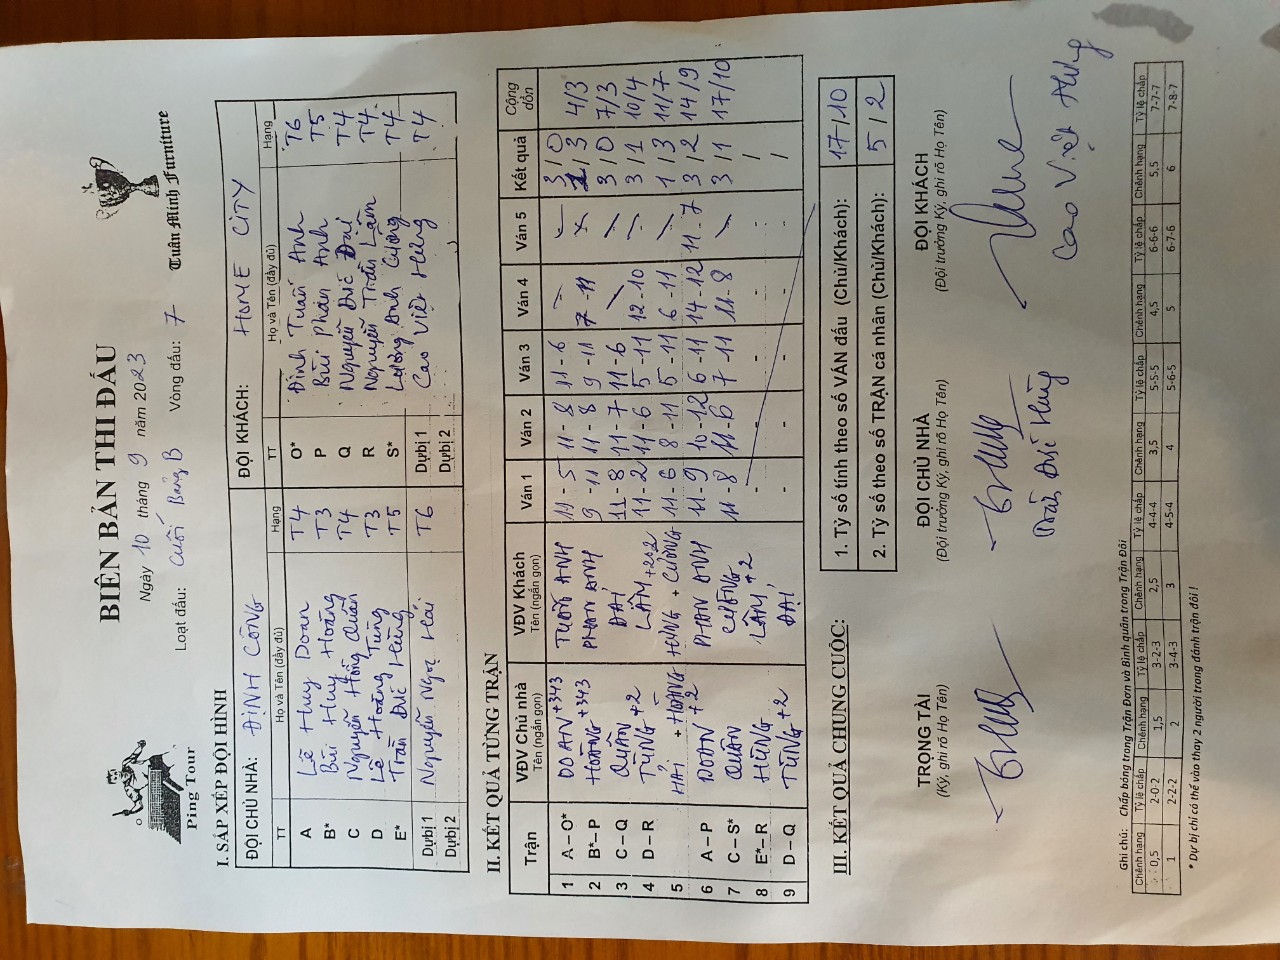 Ping Tour
BIÊN BẢN THI ĐẤU
Ngày 10 tháng 9 năm 2023
Loạt đấu: Cuối Bảng B Vòng đấu: 7
Tuấn Minh Furniture
I. SẮP XẾP ĐỘI HÌNH
ĐỘI CHỦ NHÀ: ĐỊNH CÔNG ĐỘI KHÁCH: HOME CITY
TT Họ và Tên (đầy đủ) Hạng TT Họ và Tên (đầy đủ) Hạng
A Lê Huy Doan T4 O* Đinh Tuấn Anh T6
B* Bùi Huy Hoàng T3 P Bùi Phan Anh T5
C Nguyễn Hồng Quân T4 Q Nguyễn Đức Đại T4
D Lê Hoàng Tùng T3 R Nguyễn Trần Lâm T4
E* Trần Đức Hùng T5 S* Lương Anh Cường T4
Dự bị 1 Nguyễn Ngọc Hải T6 Dự bị 1 Cao Việt Hùng T4
Dự bị 2 Dự bị 2
II. KẾT QUẢ TỪNG TRẬN
Trận VĐV Chủ nhà Tên (ngắn gọn) VĐV Khách Tên (ngắn gọn) Ván 1 Ván 2 Ván 3 Ván 4 Ván 5 Kết quả Cộng dồn
1 A – O* DOAN +343 TUẤN ANH 11 - 5 11 - 8 11 - 6 - 3 / 0 4/3
2 B* – P HOÀNG +343 PHAN ANH 9 - 11 11 - 8 9 - 11 7 - 11 / 3 7/3
3 C – Q QUÂN ĐẠI 11 - 8 11 - 7 11 - 6 3 / 0 10/4
4 D – R TÙNG +2 LÂM +202 11 - 2 11 - 6 5 - 11 12 - 10 3 / 1 11/7
5 HẢI + HOÀNG HÙNG + CƯỜNG 11 - 6 8 - 11 5 - 11 6 - 11 1 / 3 14/9
6 A – P DOAN +2 PHAN ANH 11 - 9 10 - 12 6 - 11 14 - 12 11 - 7 3 / 2 17/10
7 C – S* QUÂN CƯỜNG 11 - 8 11 - 6 7 - 11 11 - 8 3 / 1
8 E* – R HÙNG LÂM +2 - - - - : /
9 D – Q TÙNG +2 ĐẠI - - - - : /
III. KẾT QUẢ CHUNG CUỘC:
1. Tỷ số tính theo số VÁN đấu (Chủ/Khách): 17 / 10
2. Tỷ số theo số TRẬN cá nhân (Chủ/Khách): 5 / 2
TRỌNG TÀI ĐỘI CHỦ NHÀ ĐỘI KHÁCH
(Ký, ghi rõ Họ Tên) (Đội trưởng Ký, ghi rõ Họ Tên) (Đội trưởng Ký, ghi rõ Họ Tên)
Trần Đức Hùng Cao Việt Hưng
Ghi chú: Chấp bóng trong Trận Đơn và Bình quân trong Trận Đôi
Chênh hạng Tỷ lệ chấp Chênh hạng Tỷ lệ chấp Chênh hạng Tỷ lệ chấp Chênh hạng Tỷ lệ chấp Chênh hạng Tỷ lệ chấp Chênh hạng Tỷ lệ chấp Chênh hạng Tỷ lệ chấp
0,5 2-0-2 1,5 3-2-3 2,5 4-4-4 3,5 5-5-5 4,5 6-6-6 5,5 7-7-7
1 2-2-2 2 3-4-3 3 4-5-4 4 5-6-5 5 6-7-6 6 7-8-7
* Dự bị chỉ có thể vào thay 2 người trong đánh trận đôi !